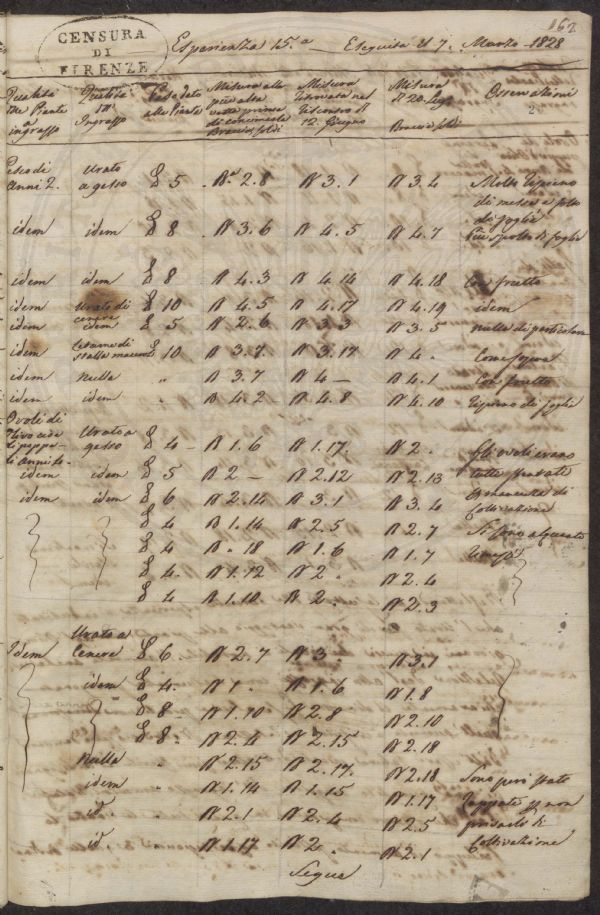 162
CENSURA
DI
FIRENZE
Esperienza 15.a Eseguita il 7. Marzo 1828
Qualità delle Piante a ingrasso
Qualità Ingrasso
Peso dato alle Piante
Misura alla più alta prima di concimarle Braccia soldi
Misura ritrovata nel riscontro 12. Giugno
Misura 20. Braccia soldi
Osservazioni
2
Peschi di Anni 2. Urato a gesso £ 5 Ba 2.8 N 3.1 N 3.4 Molto ripieno di messe a folto di foglie
idem idem £ 8 N 3.6 N 4.5 N 4.7 Più spoglio di foglie
idem idem £ 8 N 4.3 N 4.14 N 4.18 Con frutto
idem Urato di cenere £ 10 N 4.5 N 4.17 N 4.19 idem
idem idem £ 5 N 2.6 N 3.3 N 3.5 nulla di particolare
idem Letame di stalla macerato £ 10 N 3.7 N 3.17 N 4. Come sopra
idem nulla " N 3.7 N 4 — N 4.1 Con frutto
idem idem " N 4.2 N 4.8 N 4.10 ripieno di foglie
Ovoli di Ulivo di anni Urato a gesso £ 4 — N 1.6 N 1.17. N 2. Gli ovoli erano
idem idem £ 5 N 2 — N 2.12 N 2.13 tutti
idem idem £ 6 N 2.14 N 3.1 N 3.4 di Coltivazione
£ 4 N 1.14 N 2.5 N 2.7 Si sono
£ 4 N " 18 N 1.6 N 1.7
£ 4. N 1.12 N 2. N 2.4
£ 4 N 1.10 N 2. N 2.3
Idem Urato a Cenere £ 6. N 2.7 N 3. N 3.7
idem £ 4. N 1. N 1.6 N 1.8
£ 8 — N 1.10 N 2.8 N 2.10
£ 8 - N 2.4 N 2.15 N 2.18
Nulla " N 2.15 N 2.17. N 2.18 Sono però state
idem " N 1.14 N 1.15 N 1.17 non
id. " N 2.1 N 2.4 N 2.5 di
id " N 1.17 N 2. N 2.1 Coltivazione
Segue